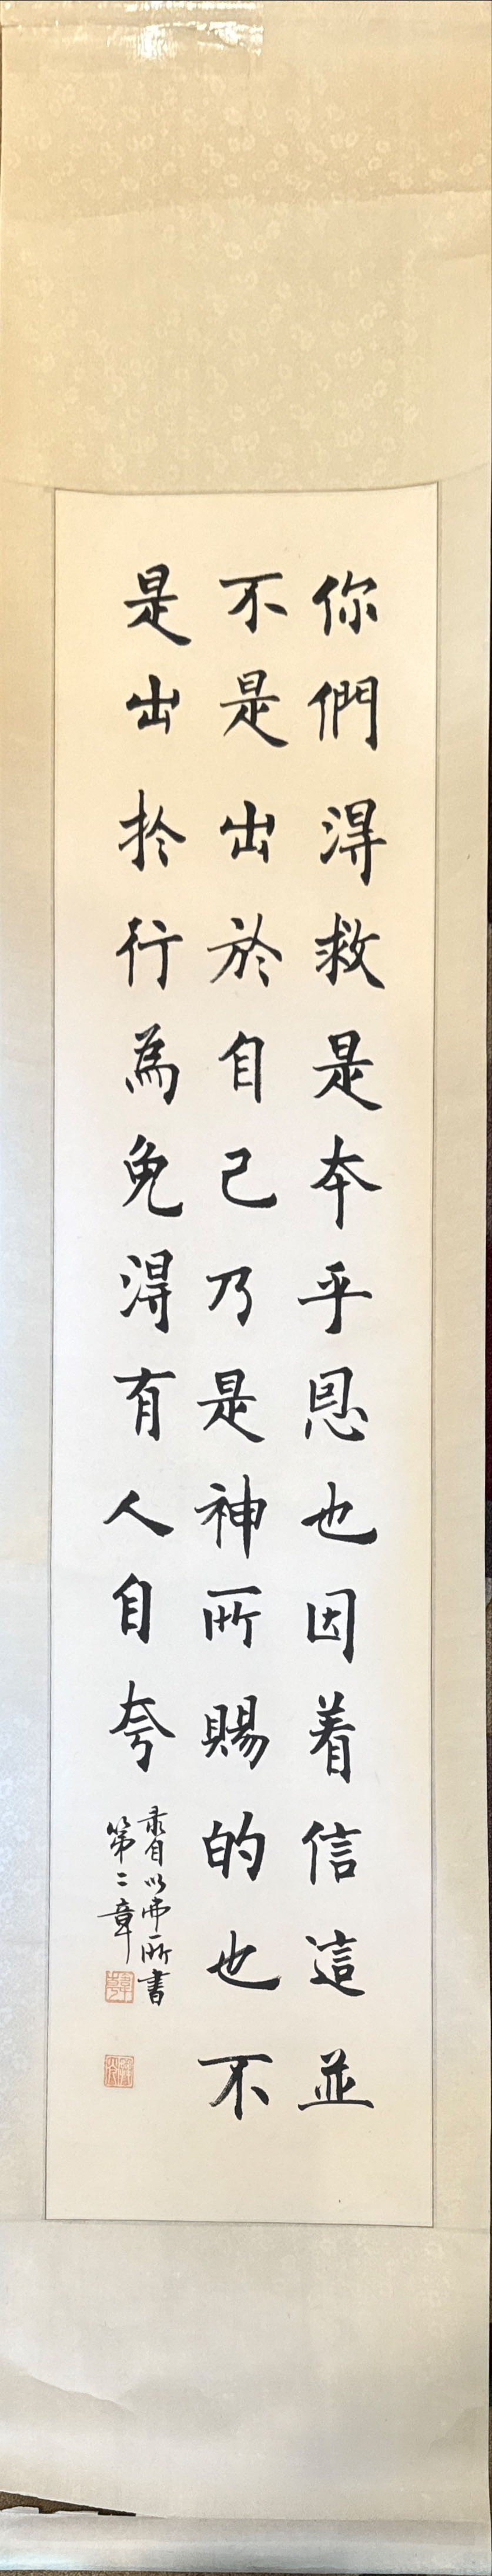 你們淂救是本乎恩也因着信這並
不是出於自己乃是神所賜的也不
是出扵行為免淂有人自夸
录自以弗所書
第二章